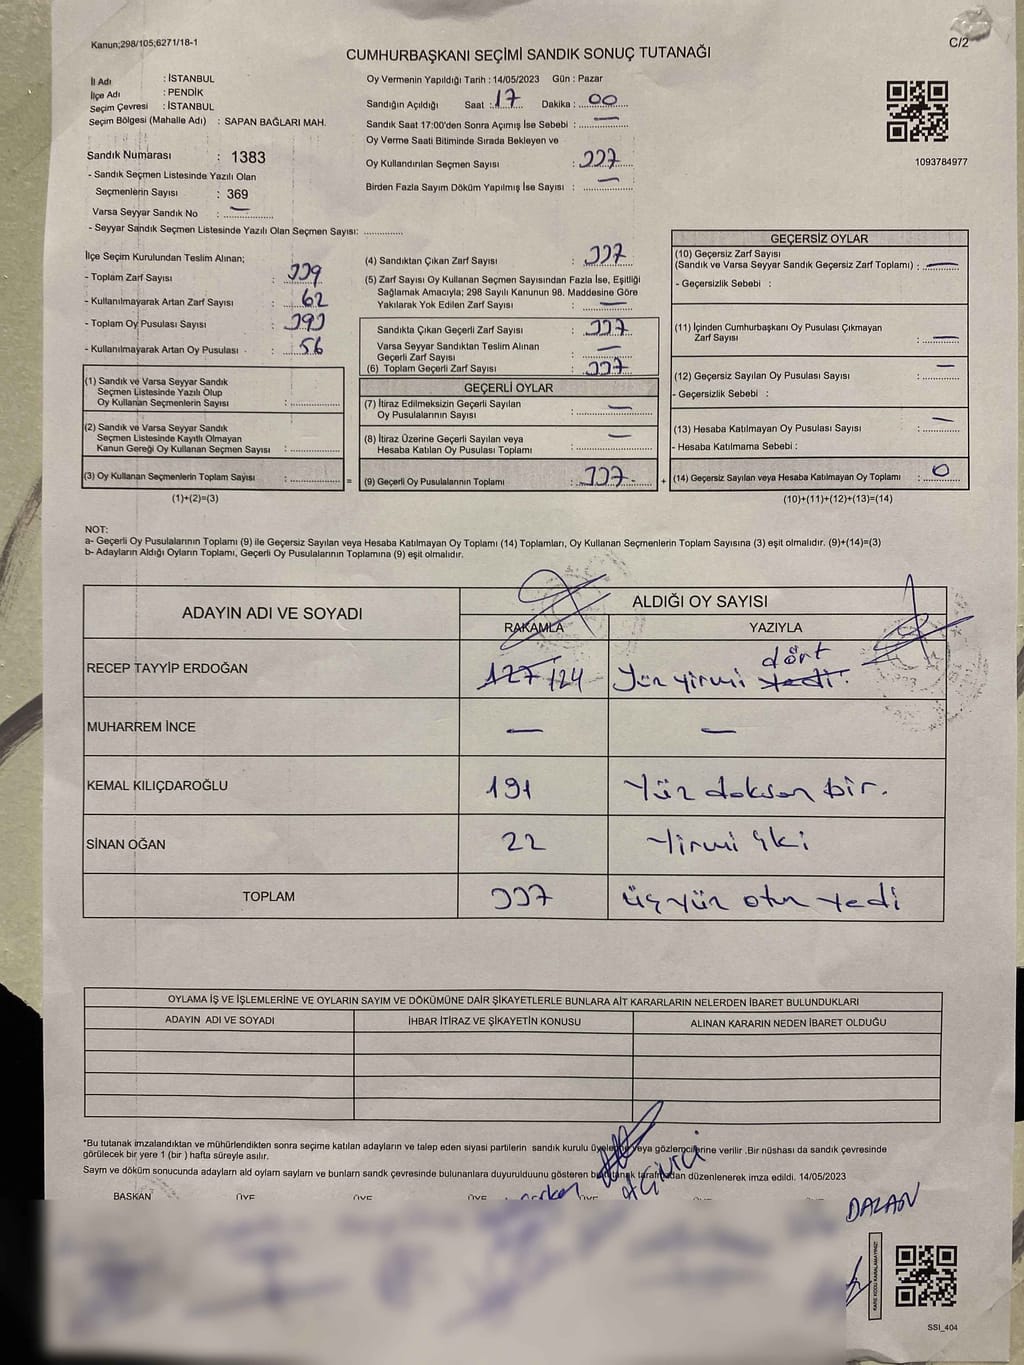 Kanun;298/105;6271/18-1
C/2
CUMHURBAŞKANI SEÇİMİ SANDIK SONUÇ TUTANAĞI
İl Adı : İSTANBUL
İlçe Adı : PENDİK
Seçim Çevresi : İSTANBUL
Seçim Bölgesi (Mahalle Adı) : SAPAN BAĞLARI MAH.
Sandık Numarası : 1383
- Sandık Seçmen Listesinde Yazılı Olan
Seçmenlerin Sayısı : 369
Varsa Seyyar Sandık No : —
- Seyyar Sandık Seçmen Listesinde Yazılı Olan Seçmen Sayısı: ..............
Oy Vermenin Yapıldığı Tarih : 14/05/2023 Gün : Pazar
Sandığın Açıldığı Saat : 17 Dakika : 00
Sandık Saat 17:00'den Sonra Açımış İse Sebebi : —
Oy Verme Saati Bitiminde Sırada Bekleyen ve
Oy Kullandırılan Seçmen Sayısı : 337
Birden Fazla Sayım Döküm Yapılmış İse Sayısı : —
1093784977
İlçe Seçim Kurulundan Teslim Alınan;
- Toplam Zarf Sayısı : 399
- Kullanılmayarak Artan Zarf Sayısı : 62
- Toplam Oy Pusulası Sayısı : 393
- Kullanılmayarak Artan Oy Pusulası : 56
(1) Sandık ve Varsa Seyyar Sandık
Seçmen Listesinde Yazılı Olup
Oy Kullanan Seçmenlerin Sayısı : ..............
(2) Sandık ve Varsa Seyyar Sandık
Seçmen Listesinde Kayıtlı Olmayan
Kanun Gereği Oy Kullanan Seçmen Sayısı : ..............
(3) Oy Kullanan Seçmenlerin Toplam Sayısı : .............. =
(1)+(2)=(3)
(4) Sandıktan Çıkan Zarf Sayısı : 337
(5) Zarf Sayısı Oy Kullanan Seçmen Sayısından Fazla İse, Eşitliği
Sağlamak Amacıyla; 298 Sayılı Kanunun 98. Maddesine Göre
Yakılarak Yok Edilen Zarf Sayısı : —
Sandıkta Çıkan Geçerli Zarf Sayısı : 337
Varsa Seyyar Sandıktan Teslim Alınan
Geçerli Zarf Sayısı : —
(6) Toplam Geçerli Zarf Sayısı : 337
GEÇERLİ OYLAR
(7) İtiraz Edilmeksizin Geçerli Sayılan
Oy Pusulalarının Sayısı : —
(8) İtiraz Üzerine Geçerli Sayılan veya
Hesaba Katılan Oy Pusulası Toplamı : —
(9) Geçerli Oy Pusulalarının Toplamı : 337 +
GEÇERSİZ OYLAR
(10) Geçersiz Zarf Sayısı
(Sandık ve Varsa Seyyar Sandık Geçersiz Zarf Toplamı) : —
- Geçersizlik Sebebi :
(11) İçinden Cumhurbaşkanı Oy Pusulası Çıkmayan
Zarf Sayısı : —
(12) Geçersiz Sayılan Oy Pusulası Sayısı : —
- Geçersizlik Sebebi :
(13) Hesaba Katılmayan Oy Pusulası Sayısı : —
- Hesaba Katılmama Sebebi :
(14) Geçersiz Sayılan veya Hesaba Katılmayan Oy Toplamı : 0
(10)+(11)+(12)+(13)=(14)
NOT:
a- Geçerli Oy Pusulalarının Toplamı (9) ile Geçersiz Sayılan veya Hesaba Katılmayan Oy Toplamı (14) Toplamları, Oy Kullanan Seçmenlerin Toplam Sayısına (3) eşit olmalıdır. (9)+(14)=(3)
b- Adayların Aldığı Oyların Toplamı, Geçerli Oy Pusulalarının Toplamına (9) eşit olmalıdır.
ADAYIN ADI VE SOYADI ALDIĞI OY SAYISI
RAKAMLA YAZIYLA
RECEP TAYYİP ERDOĞAN 127 124 Yüz yirmi yedi dört
MUHARREM İNCE — —
KEMAL KILIÇDAROĞLU 191 Yüz doksan bir.
SİNAN OĞAN 22 Yirmi iki
TOPLAM 337 üç yüz otuz yedi
OYLAMA İŞ VE İŞLEMLERİNE VE OYLARIN SAYIM VE DÖKÜMÜNE DAİR ŞİKAYETLERLE BUNLARA AİT KARARLARIN NELERDEN İBARET BULUNDUKLARI
ADAYIN ADI VE SOYADI İHBAR İTİRAZ VE ŞİKAYETİN KONUSU ALINAN KARARIN NEDEN İBARET OLDUĞU
*Bu tutanak imzalandıktan ve mühürlendikten sonra seçime katılan adayların ve talep eden siyasi partilerin sandık kurulu üyelerine veya gözlemcilerine verilir .Bir nüshası da sandık çevresinde
görülecek bir yere 1 (bir ) hafta süreyle asılır.
Sayım ve döküm sonucunda adayların ald oyların sayların ve bunların sandk çevresinde bulunanlara duyurulduunu gösteren bu tutanak tarafından düzenlenerek imza edildi. 14/05/2023
BAŞKAN ÜYE ÜYE ÜYE ÜYE
DALAN
KARE KODU KARALAMAYINIZ!
SSİ_404